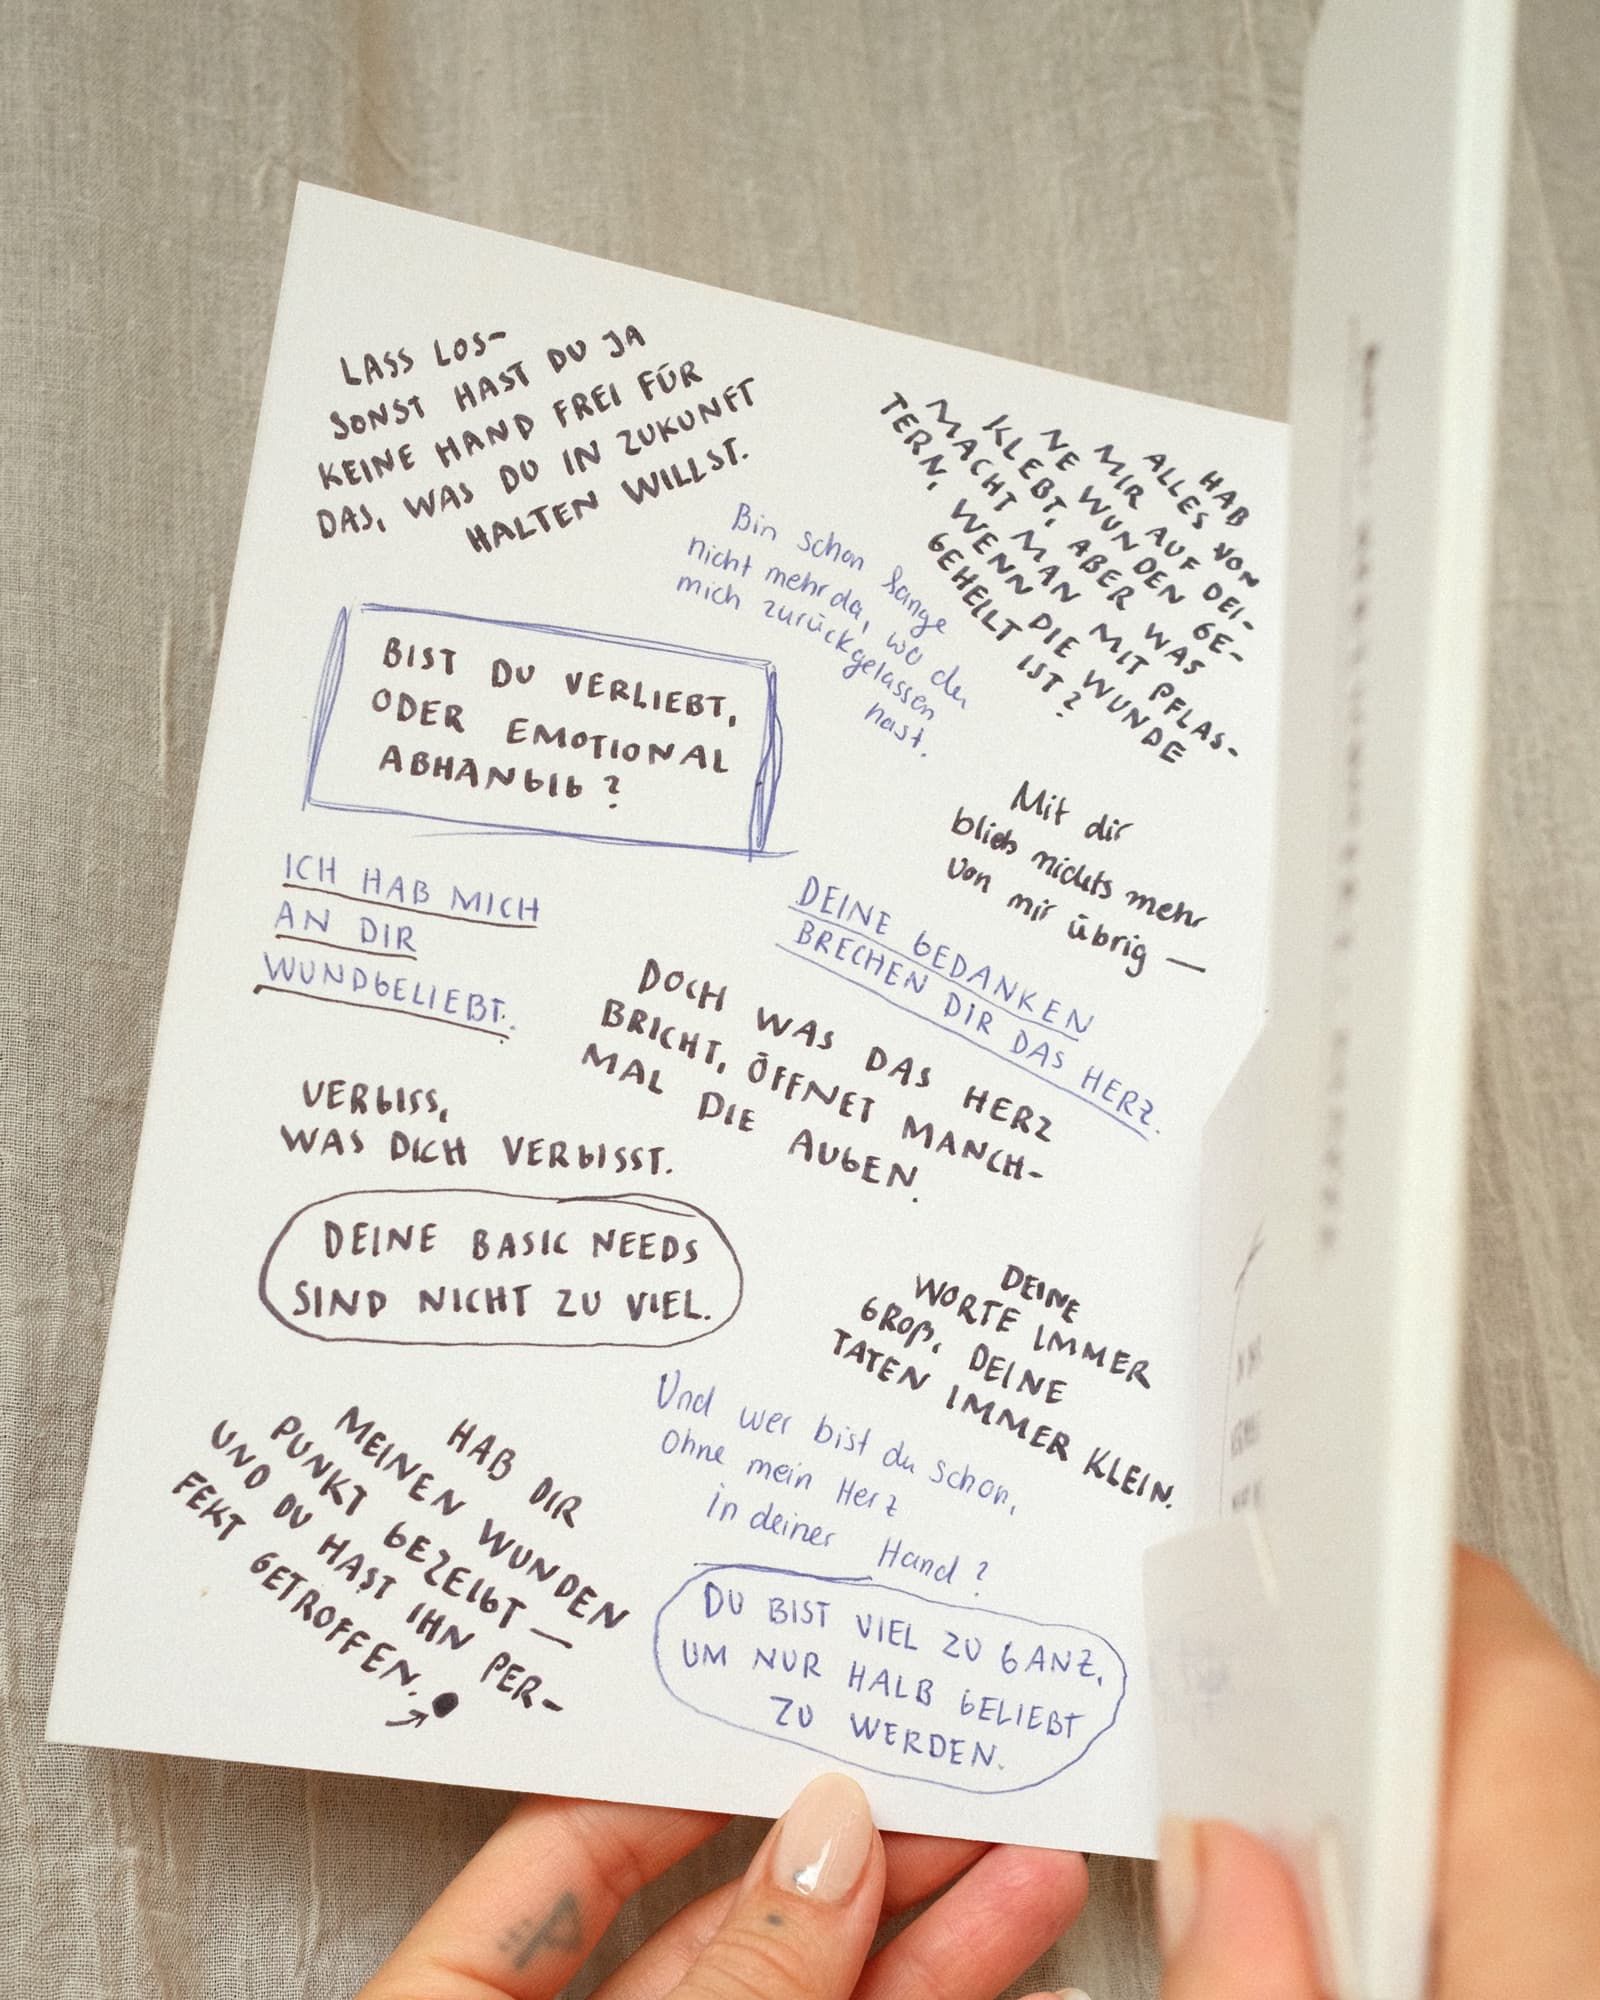 LASS LOS-
SONST HAST DU JA
KEINE HAND FREI FÜR
DAS, WAS DU IN ZUKUNFT
HALTEN WILLST.
HAB
ALLES VON
MIR AUF DEI-
NE WUNDEN GE-
KLEBT, ABER WAS
MACHT MAN MIT PFLAS-
TERN, WENN DIE WUNDE
GEHEILT IST?
Bin schon lange
nicht mehr da, wo du
mich zurückgelassen
hast.
BIST DU VERLIEBT,
ODER EMOTIONAL
ABHÄNGIG?
Mit dir
blieb nichts mehr
von mir übrig —
ICH HAB MICH
AN DIR
WUNDGELIEBT.
DEINE GEDANKEN
BRECHEN DIR DAS HERZ.
DOCH WAS DAS HERZ
BRICHT, ÖFFNET MANCH-
MAL DIE AUGEN.
VERGISS,
WAS DICH VERGISST.
DEINE BASIC NEEDS
SIND NICHT ZU VIEL.
DEINE
WORTE IMMER
GROẞ, DEINE
TATEN IMMER KLEIN.
Und wer bist du schon,
Ohne mein Herz
in deiner Hand?
HAB DIR
MEINEN WUNDEN
PUNKT GEZEIGT —
UND DU HAST IHN PER-
FEKT GETROFFEN.
DU BIST VIEL ZU GANZ,
UM NUR HALB GELIEBT
ZU WERDEN.